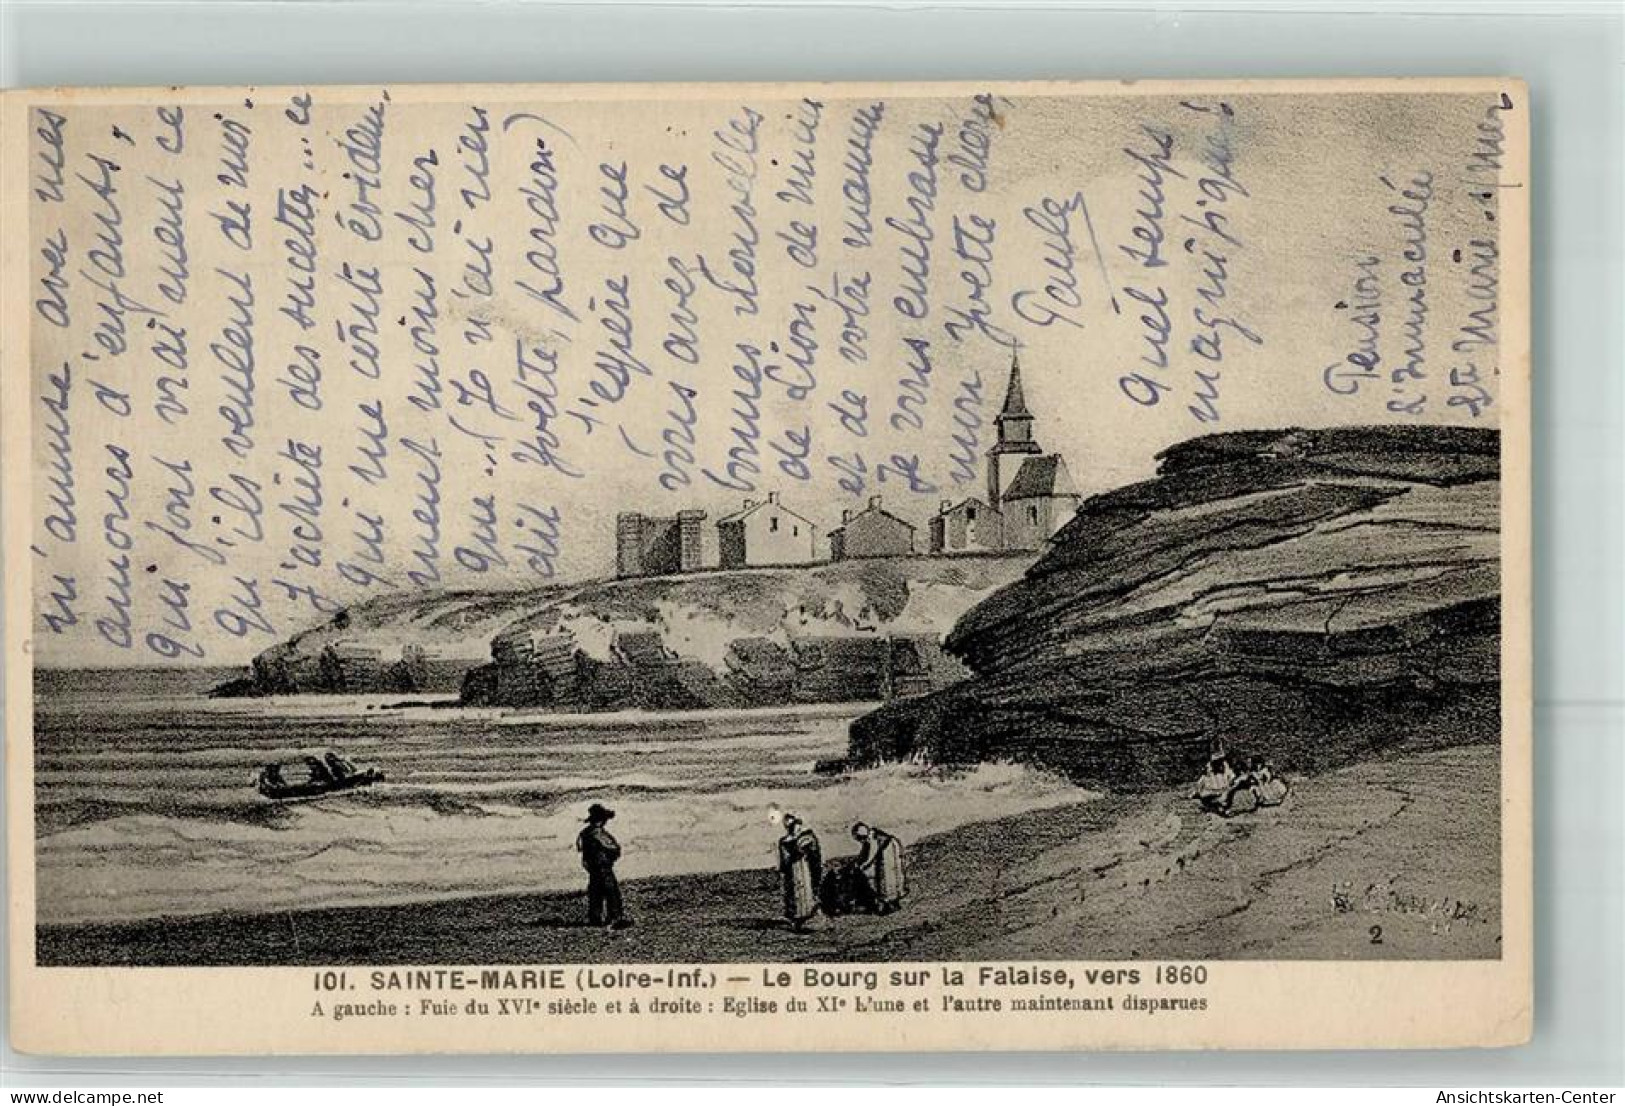 m'amuse avec mes
amours d'enfants,
qui font vraiment ce
qu'ils veulent de moi.
J'achète des sucettes... ce
qui me coûte évidem-
ment moins cher
que...(Je n'ai rien
dit Yvette, pardon)
J'espère que
vous avez de
bonnes nouvelles
de Lion, de Mimi
et de votre maman
Je vous embrasse
mon Yvette chérie,
Paule
Quel temps
magnifique!
Pension
L'Immaculée
Ste Marie s/Mer
2
101. SAINTE-MARIE (Loire-Inf.) — Le Bourg sur la Falaise, vers 1860
A gauche : Fuie du XVIe siècle et à droite : Eglise du XIe L'une et l'autre maintenant disparues
www.delcampe.net
Ansichtskarten-Center